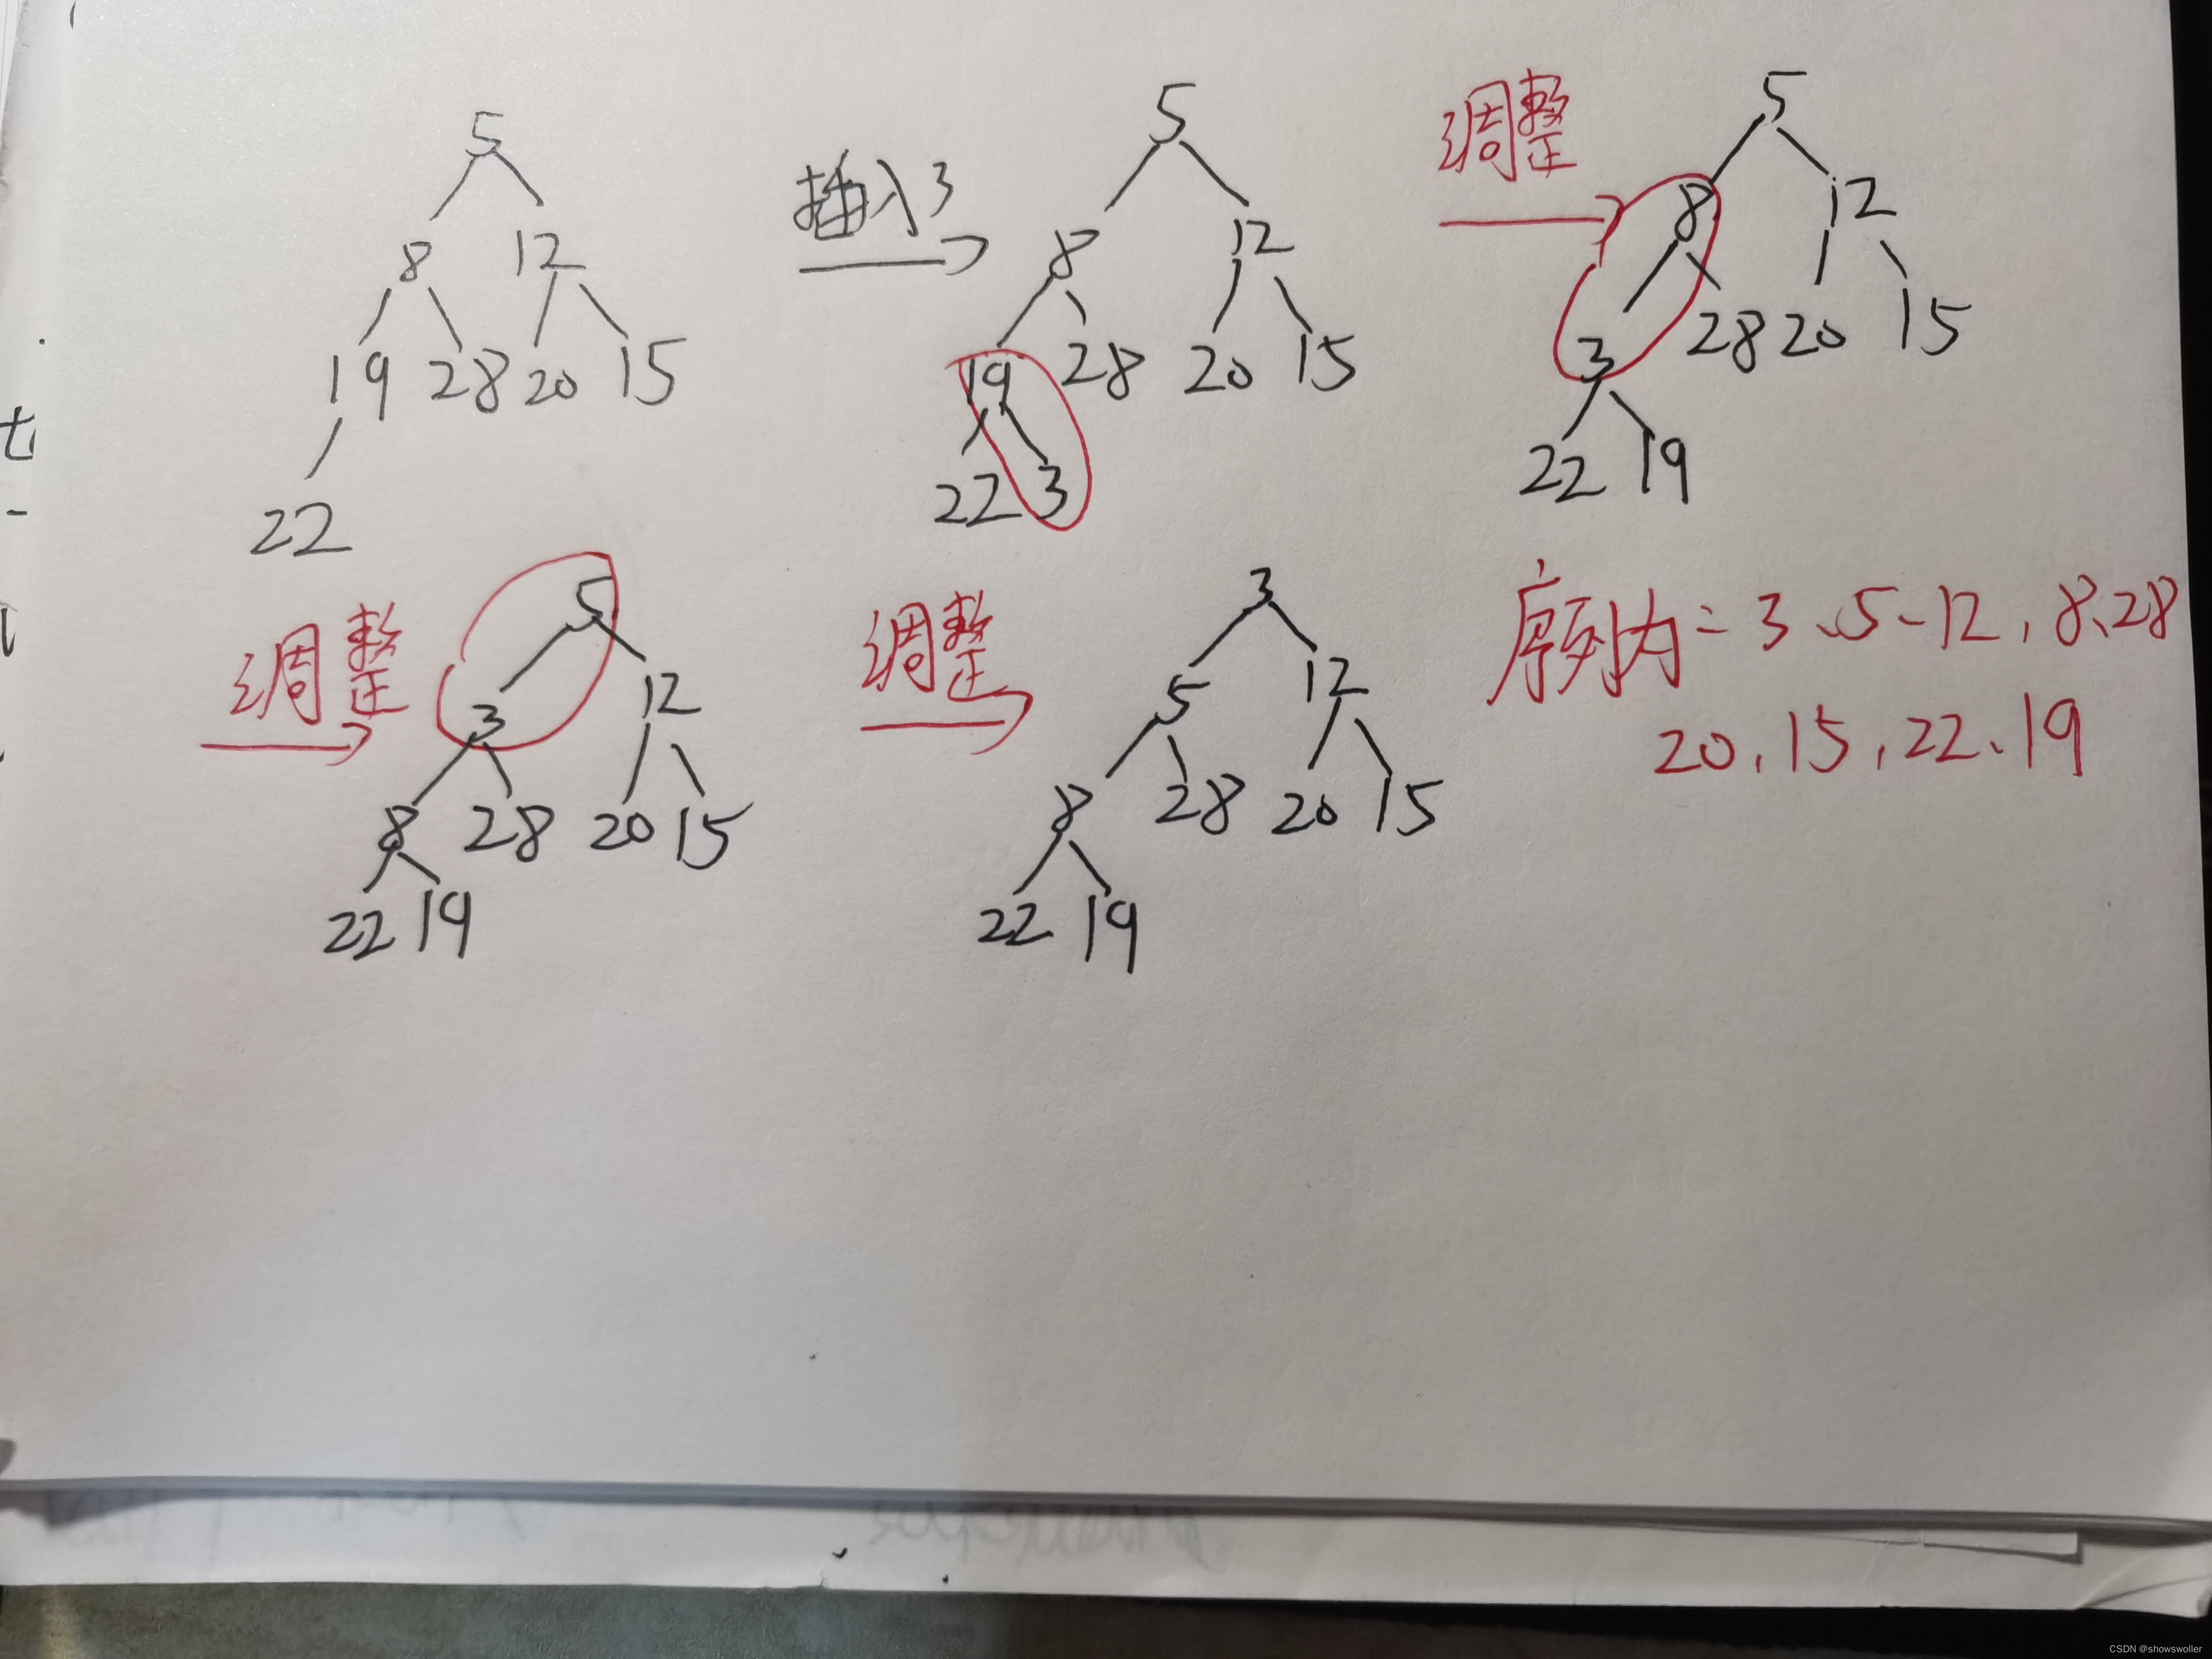 5
8 12
19 28 20 15
22
插入3
5
8 12
19 28 20 15
22 3
调整
5
8 12
3 28 20 15
22 19
调整
5
3 12
8 28 20 15
22 19
调整
3
5 12
8 28 20 15
22 19
序列为: 3、5、12、8、28
20、15、22、19
CSDN @showswoller